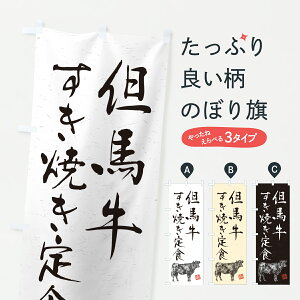 但馬牛
すき焼き定食
たっぷり
良い柄
のぼり旗
やったね
えらべる
3タイプ
A
B
C
但馬牛
すき焼き定食
但馬牛
すき焼き定食
但馬牛
すき焼き定食